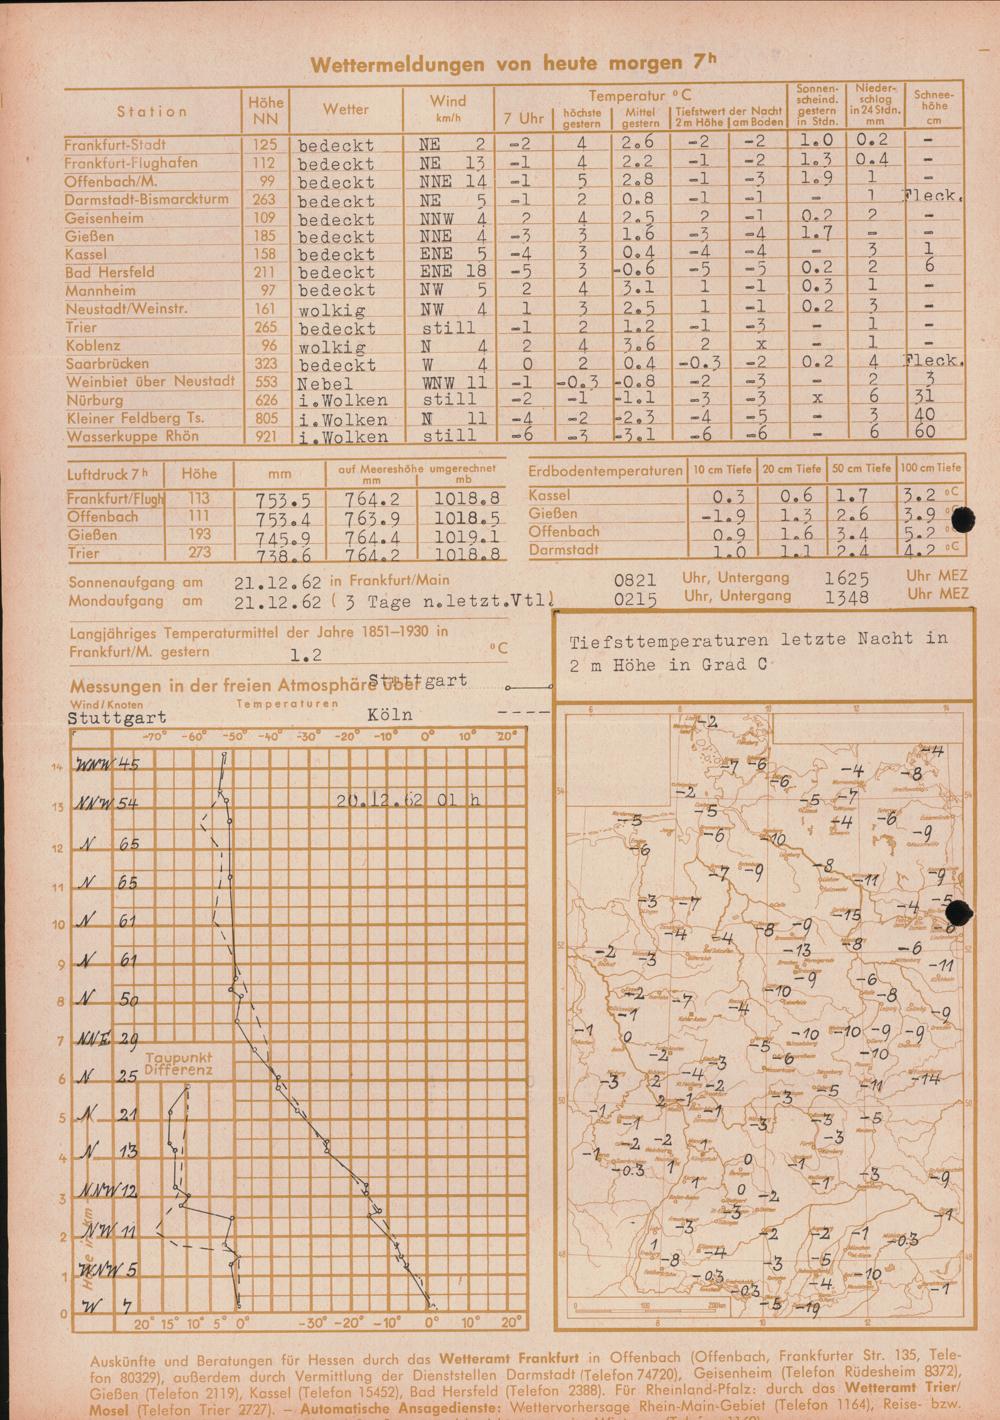 Wettermeldungen von heute morgen 7h
Station Höhe NN Wetter Wind km/h Temperatur °C 7 Uhr höchste gestern Mittel gestern Tiefstwert der Nacht 2m Höhe am Boden Sonnen-scheind. gestern in Stdn. Nieder-schlag in 24 Stdn. mm Schnee-höhe cm
Frankfurt-Stadt 125 bedeckt NE 2 -2 4 2.6 -2 -2 1.0 0.2 -
Frankfurt-Flughafen 112 bedeckt NE 13 -1 4 2.2 -1 -2 1.3 0.4 -
Offenbach/M. 99 bedeckt NNE 14 -1 5 2.8 -1 -3 1.9 1 -
Darmstadt-Bismarckturm 263 bedeckt NE 5 -1 2 0.8 -1 -1 - 1 Fleck.
Geisenheim 109 bedeckt NNW 4 2 4 2.5 2 -1 0.2 2 -
Gießen 185 bedeckt NNE 4 -3 3 1.6 -3 -4 1.7 - -
Kassel 158 bedeckt ENE 5 -4 3 0.4 -4 -4 - 3 1
Bad Hersfeld 211 bedeckt ENE 18 -5 3 -0.6 -5 -5 0.2 2 6
Mannheim 97 bedeckt NW 5 2 4 3.1 1 -1 0.3 1 -
Neustadt/Weinstr. 161 wolkig NW 4 1 3 2.5 1 -1 0.2 3 -
Trier 265 bedeckt still -1 2 1.2 -1 -3 - 1 -
Koblenz 96 wolkig N 4 2 4 3.6 2 x - 1 -
Saarbrücken 323 bedeckt W 4 0 2 0.4 -0.3 -2 0.2 4 Fleck.
Weinbiet über Neustadt 553 Nebel WNW 11 -1 -0.3 -0.8 -2 -3 - 2 3
Nürburg 626 i.Wolken still -2 -1 -1.1 -3 -3 x 6 31
Kleiner Feldberg Ts. 805 i.Wolken N 11 -4 -2 -2.3 -4 -5 - 3 40
Wasserkuppe Rhön 921 i.Wolken still -6 -3 -3.1 -6 -6 - 6 60
Luftdruck 7h Höhe mm auf Meereshöhe umgerechnet mm mb
Frankfurt/Flugh 113 753.5 764.2 1018.8
Offenbach 111 753.4 763.9 1018.5
Gießen 193 745.9 764.4 1019.1
Trier 273 738.6 764.2 1018.8
Erdbodentemperaturen 10 cm Tiefe 20 cm Tiefe 50 cm Tiefe 100 cm Tiefe
Kassel 0.3 0.6 1.7 3.2 °C
Gießen -1.9 1.3 2.6 3.9 °C
Offenbach 0.9 1.6 3.4 5.2 °C
Darmstadt 1.0 1.1 2.4 4.2 °C
Sonnenaufgang am 21.12.62 in Frankfurt/Main 0821 Uhr, Untergang 1625 Uhr MEZ
Mondaufgang am 21.12.62 ( 3 Tage n.letzt.Vtl) 0215 Uhr, Untergang 1348 Uhr MEZ
Langjähriges Temperaturmittel der Jahre 1851–1930 in
Frankfurt/M. gestern 1.2 °C
Messungen in der freien Atmosphäre über Stuttgart
Wind/Knoten Temperaturen
Stuttgart Köln
-70° -60° -50° -40° -30° -20° -10° 0° 10° 20°
14 WNW 45
13 NNW 54 20.12.62 01 h
12 N 65
11 N 65
10 N 61
9 N 61
8 N 50
7 NNE 29
Taupunkt
Differenz
6 N 25
5 N 21
4 N 13
3 NNW 12
2 NW 11
1 WNW 5
0 W 7
Höhe in km
20° 15° 10° 5° 0° -30° -20° -10° 0° 10° 20°
Tiefsttemperaturen letzte Nacht in
2 m Höhe in Grad C
6 8 10 12 14
-2
-7 -6 -4
-6 -4 -8
-2 -5 -7
-5 -5 -4 -6
-6 -6 -10 -9
-7 -9 -8 -11 -9
-3 -7 -15 -4 -5
-4 -4 -8 -9 -8 -6
-2 -3 -13 -6 -11
-2 -7 -4 -10 -9 -6 -8
-1 -1 0 -10 -10 -9 -9 -9
-2 -5 -6 -10
-3 2 -4 -3 -2 -5 -11 -14
-1 2 -1 -1 -3 -5
-1 -2 -2 1 -3 -3
-1 -0.3 1 0 -1
1 0 -2 -1 -3 -9
-3 -3 -2 -2 -1 -1
1 -8 -4 -3 -5 -0.3
-0.3 -0.3 -4 -10 -1
-5 -19
0 100 200km
8 10 12
Auskünfte und Beratungen für Hessen durch das Wetteramt Frankfurt in Offenbach (Offenbach, Frankfurter Str. 135, Tele-
fon 80329), außerdem durch Vermittlung der Dienststellen Darmstadt (Telefon 74720), Geisenheim (Telefon Rüdesheim 8372),
Gießen (Telefon 2119), Kassel (Telefon 15452), Bad Hersfeld (Telefon 2388). Für Rheinland-Pfalz: durch das Wetteramt Trier/
Mosel (Telefon Trier 2727). — Automatische Ansagedienste: Wettervorhersage Rhein-Main-Gebiet (Telefon 1164), Reise- bzw.